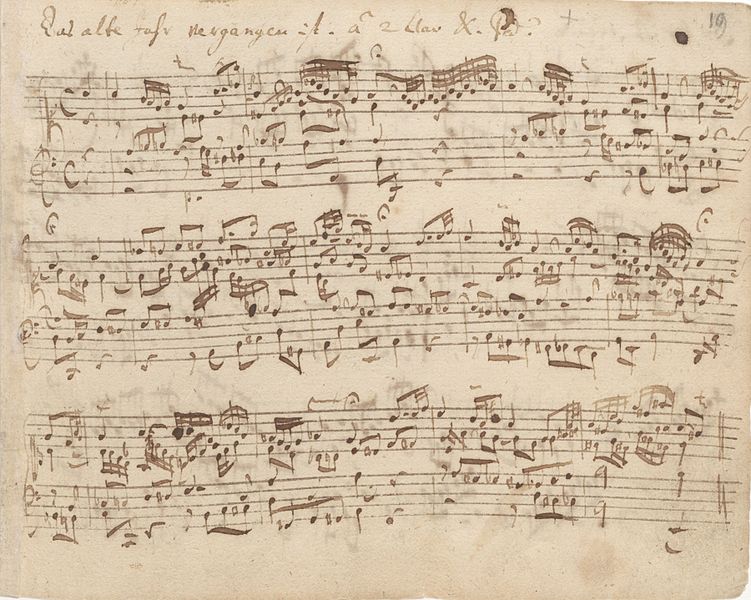 Das alte Jahr vergangen ist. â 2 Clav. & Ped.
19